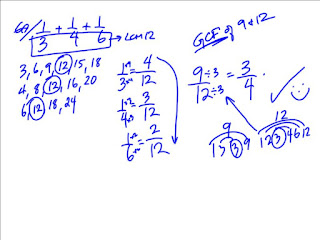 1/3 + 1/4 + 1/6 → LCM 12
3, 6, 9, 12, 15, 18
4, 8, 12, 16, 20
6, 12, 18, 24
1×4/3×4 = 4/12
1×3/4×3 = 3/12
1×2/6×2 = 2/12
GCF of 9 & 12
9÷3/12÷3 = 3/4
9
1 5 3 9
12
1 2 3 4 6 12